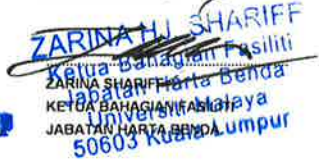 ZARINA HJ. SHARIFF
Ketua Bahagian Fasiliti
Jabatan Harta Benda
Universiti Malaya
50603 Kuala Lumpur
ZARINA SHARIFF
KETUA BAHAGIAN FASILITI
JABATAN HARTA BENDA